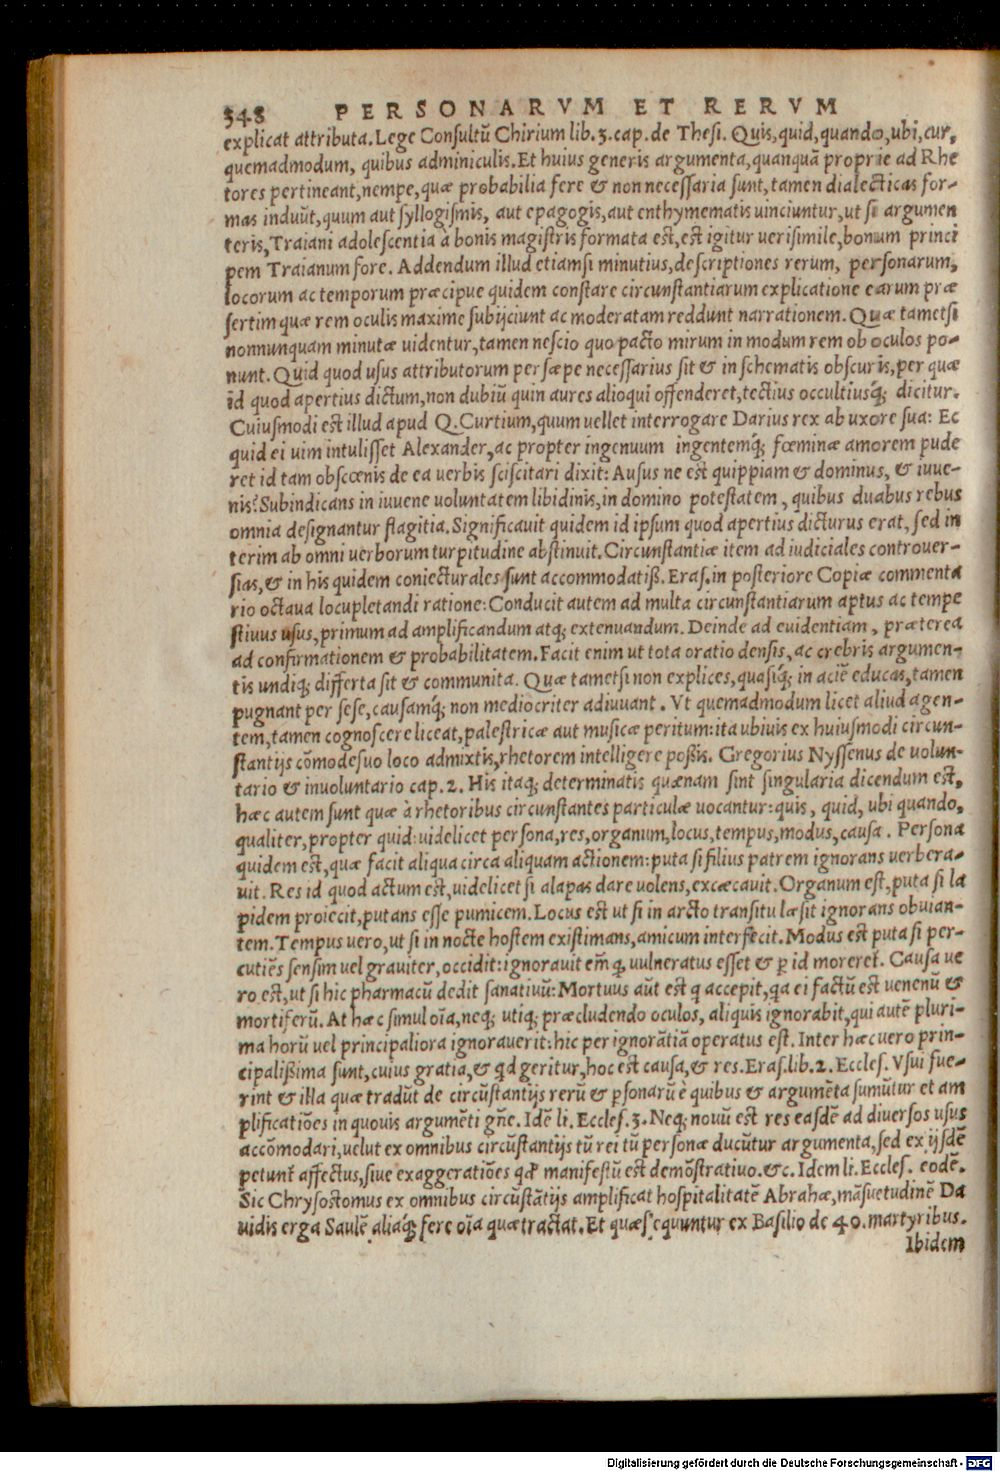 348 PERSONARVM ET RERVM
explicat attributa. Lege Consultũ Chirium lib.3.cap. de Thesi. Quis, quid, quando, ubi, cur,
quemadmodum, quibus adminiculis. Et huius generis argumenta, quanquã proprie ad Rhe
tores pertineant, nempe, quæ probabilia fere & non necessaria sunt, tamen dialecticas for-
mas induũt, quum aut syllogismis, aut epagogis, aut enthymematis uinciuntur, ut si argumen
teris, Traiani adolescentia à bonis magistris formata est, est igitur uerisimile, bonum princi
pem Traianum fore. Addendum illud etiamsi minutius, descriptiones rerum, personarum,
locorum ac temporum præcipue quidem constare circunstantiarum explicatione earum præ
sertim quæ rem oculis maxime subijciunt ac moderatam reddunt narrationem. Quæ tametsi
nonnunquam minutæ uidentur, tamen nescio quo pacto mirum in modum rem ob oculos po-
nunt. Quid quod usus attributorum persæpe necessarius sit & in schematis obscuris, per quæ
id quod apertius dictum, non dubiũ quin aures alioqui offenderet, tectius occultiusq́; dicitur.
Cuiusmodi est illud apud Q. Curtium, quum uellet interrogare Darius rex ab uxore sua: Ec
quid ei uim intulisset Alexander, ac propter ingenuum ingentemq́; fœminæ amorem pude
ret id tam obscœnis de ea uerbis sciscitari dixit: Ausus ne est quippiam & dominus, & iuue-
nis? Subindicans in iuuene uoluntatem libidinis, in domino potestatem, quibus duabus rebus
omnia designantur flagitia. Significauit quidem id ipsum quod apertius dicturus erat, sed in
terim ab omni uerborum turpitudine abstinuit. Circunstantiæ item ad iudiciales controuer-
sias, & in his quidem coniecturales sunt accommodatiß. Eras. in posteriore Copiæ commenta
rio octaua locupletandi ratione: Conducit autem ad multa circunstantiarum aptus ac tempe
stiuus usus, primum ad amplificandum atq; extenuandum. Deinde ad euidentiam, præterea
ad confirmationem & probabilitatem. Facit enim ut tota oratio densis, ac crebris argumen-
tis undiq; differta sit & communita. Quæ tametsi non explices, quasiq́; in aciẽ educas, tamen
pugnant per sese, causamq́; non mediocriter adiuuant. Vt quemadmodum licet aliud agen-
tem, tamen cognoscere liceat, palestricæ aut musicæ peritum: ita ubiuis ex huiusmodi circun-
stantijs cõmode suo loco admixtis, rhetorem intelligere poßis. Gregorius Nyssenus de uolun-
tario & inuoluntario cap.2. His itaq; determinatis quænam sint singularia dicendum est,
hæc autem sunt quæ à rhetoribus circunstantes particulæ uocantur: quis, quid, ubi quando,
qualiter, propter quid: uidelicet persona, res, organum, locus, tempus, modus, causa. Persona
quidem est, quæ facit aliqua circa aliquam actionem: puta si filius patrem ignorans uerbera-
uit. Res id quod actum est, uidelicet si alapas dare uolens, excæcauit. Organum est, puta si la
pidem proiecit, putans esse pumicem. Locus est ut si in arcto transitu læsit ignorans obuian-
tem. Tempus uero, ut si in nocte hostem existimans, amicum interfecit. Modus est puta si per-
cutiẽs sensim uel grauiter, occidit: ignorauit em̃ q uulneratus esset & p id moreret. Causa ue
ro est, ut si hic pharmacũ dedit sanatiuũ: Mortuus aũt est q accepit, qa ei factũ est uenenũ &
mortiferũ. At hæc simul oĩa, neq; utiq; præcludendo oculos, aliquis ignorabit, qui autẽ pluri-
ma horũ uel principaliora ignorauerit: hic per ignorãtiã operatus est. Inter hæc uero prin-
cipalißima sunt, cuius gratia, & qd geritur, hoc est causa, & res. Eras. lib.2. Eccles. Vsui fue-
rint & illa quæ tradũt de circũstantijs rerũ & psonarũ è quibus & argumẽta sumũtur et am
plificatiões in quouis argumẽti gñe. Idẽ li. Eccles.3. Neq; nouũ est res easdẽ ad diuersos usus
accõmodari, uelut ex omnibus circũstantijs tũ rei tũ personæ ducũtur argumenta, sed ex ijsdẽ
petunt affectus, siue exaggeratiões qd manifestũ est demõstratiuo. &c. Idem li. Eccles. eodẽ.
Sic Chrysostomus ex omnibus circũstãtijs amplificat hospitalitatẽ Abrahæ, mãsuetudinẽ Da
uidis erga Saulẽ aliaq́; fere oĩa quæ tractat. Et quæ sequuntur ex Basilio de 40. martyribus.
Ibidem
Digitalisierung gefördert durch die Deutsche Forschungsgemeinschaft - DFG